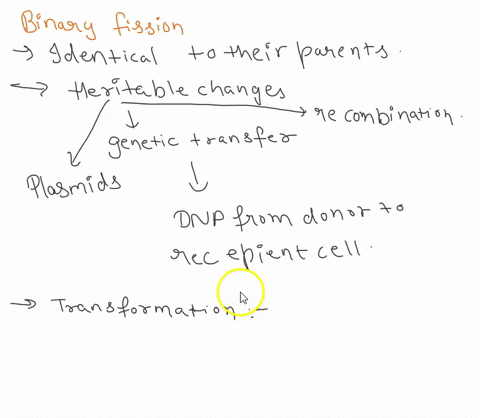 Binary fission
→ Identical to their parents.
↔ Heritable changes
recombination.
genetic transfer
Plasmids
DNP from donor to
recepient cell.
→ Transformation :-